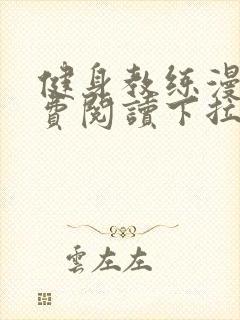 健身教练漫
費閱讀下拉
雲左左